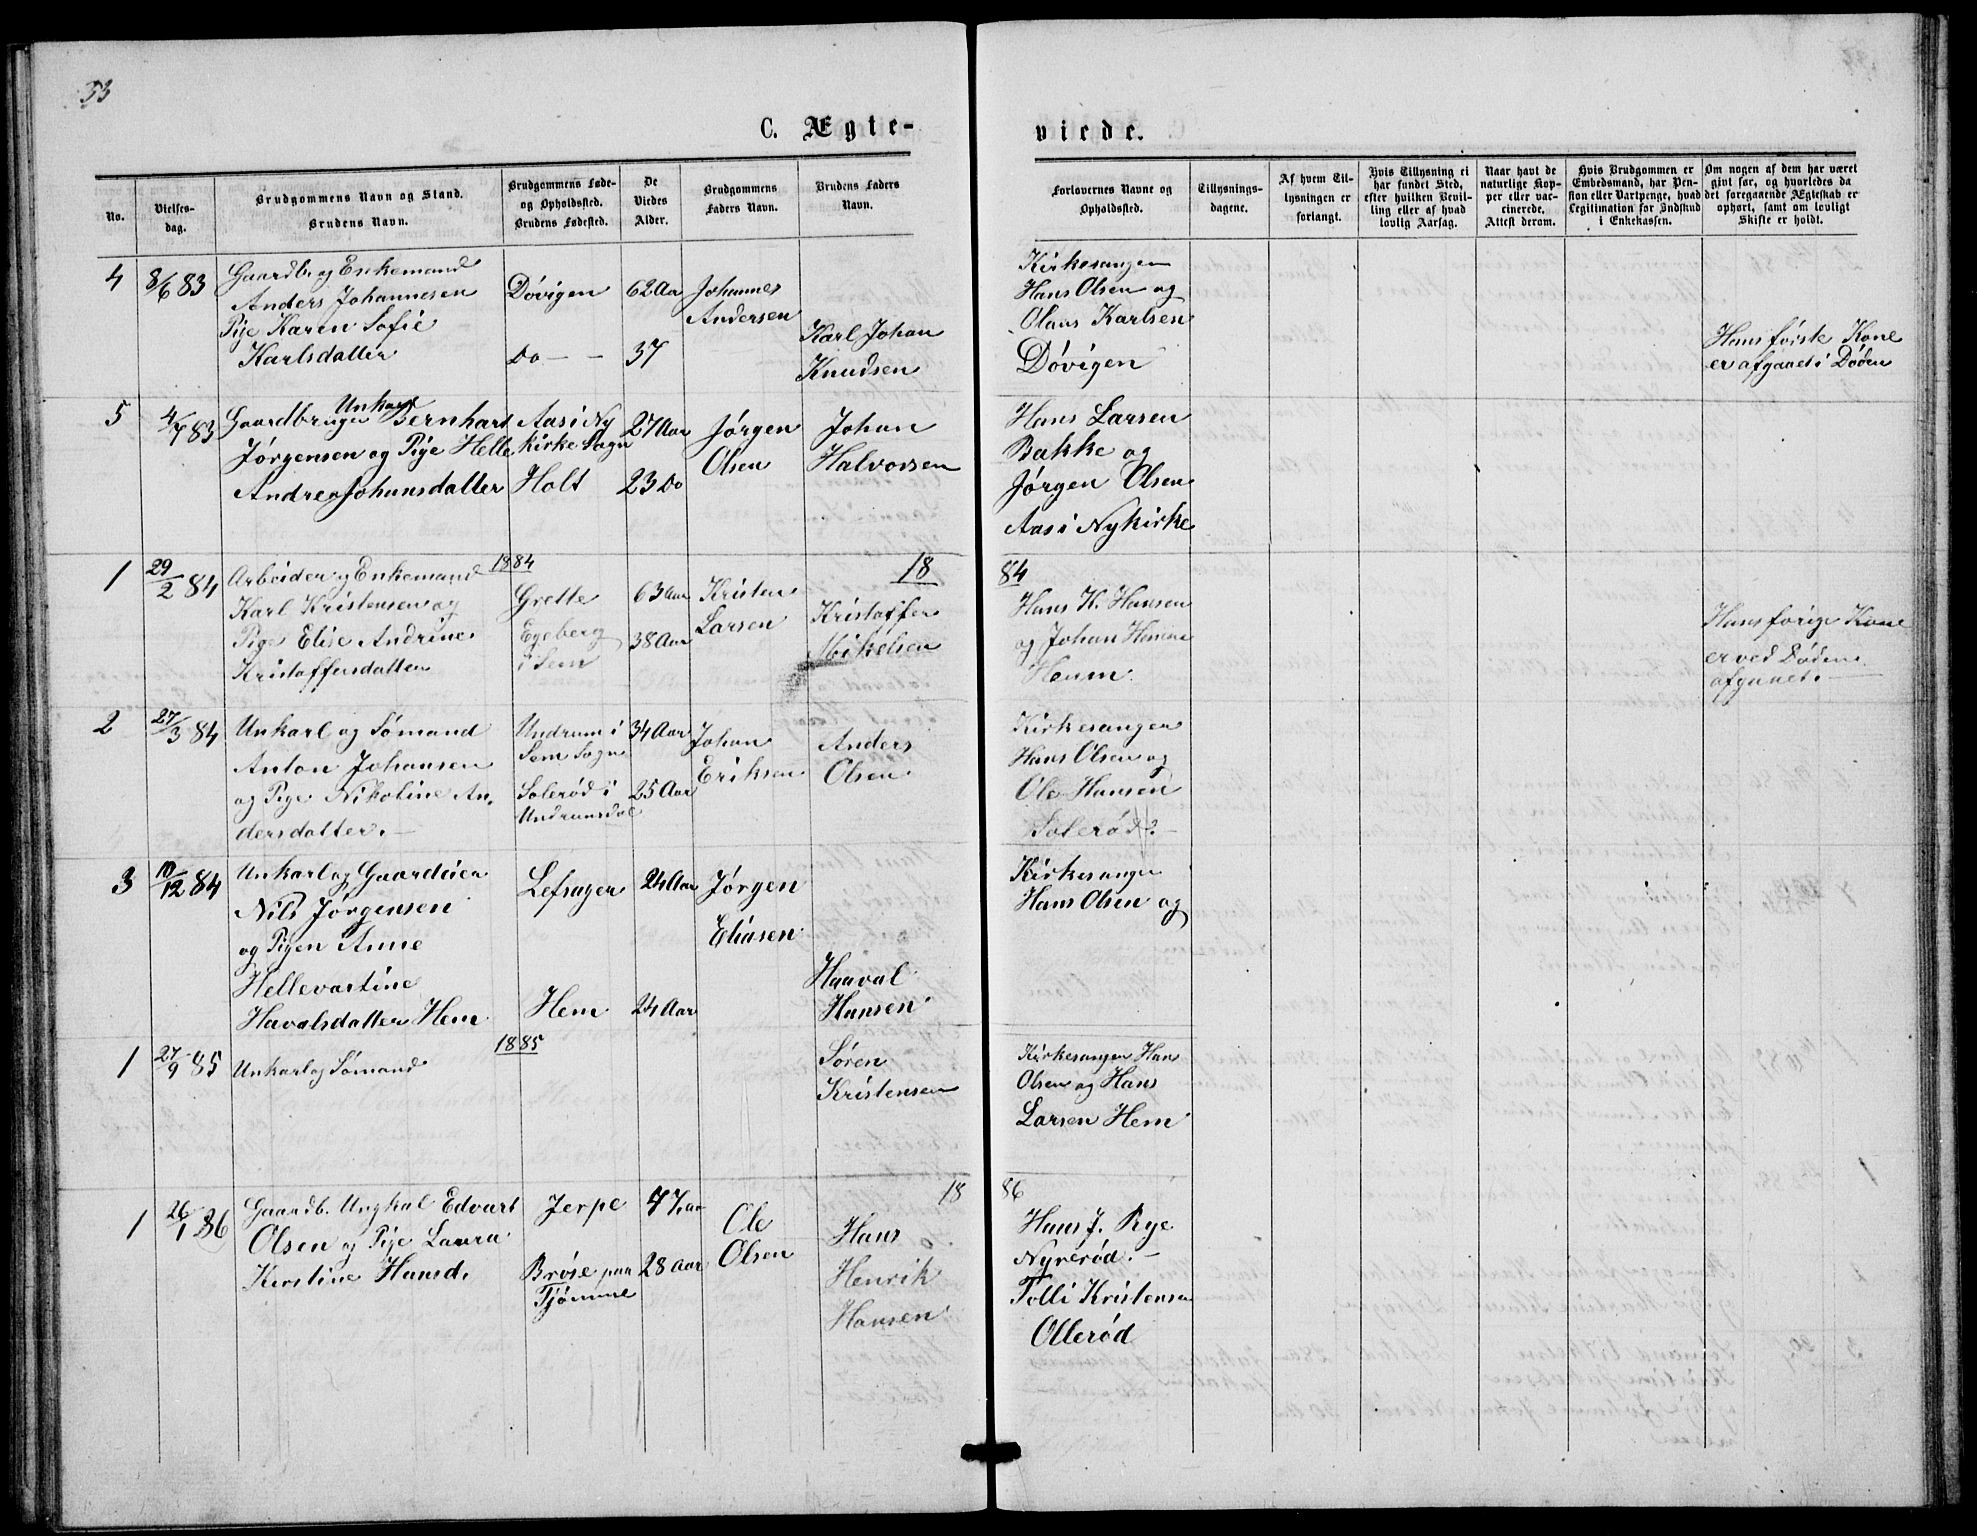 33
C. Ægte-
viede.
No.
Vielses-
dag.
Brudgommens Navn og Stand.
Brudens Navn.
Brudgommens Føde-
og Opholdssted.
Brudens Fødested.
De
Viedes
Alder.
Brudgommens
Faders Navn.
Brudens Faders
Navn.
Forlovernes Navne og
Opholdssted.
Tillysnings-
dagene.
Af hvem Til-
lysningen er
forlangt.
Hvis Tillysning ei
har fundet Sted,
efter hvilken Bevil-
ling eller af hvad
lovlig Aarsag.
Naar havt de
naturlige Kop-
per eller vac-
cinerede.
Attest derom.
Hvis Brudgommen er
Embedsmand, har Pen-
sion eller Vartpenge, hvad
Legitimation for Indskud
i Enkekassen.
Om nogen af dem har været
givt før, og hvorledes da
det foregaaende Ægteskab er
ophørt, samt om lovligt
Skifte er holdt.
4
8/6 83
Gaardb. og Enkemand
Anders Johannesen
Pige Karen Sofie
Karlsdatter
Døvigen
Do - -
62 Aar
37
Johannes
Andersen
Karl Johan
Knudsen
Kirkesanger
Hans Olsen og
Olaus Karlsen
Døvigen
Hans første Kone
er afgaaet i Døden
5
4/7 83
Unkarl
Gaardbruger Bernhart
Jørgensen og Pige Helle
Andrea Johansdatter
Aas i Ny
kirke Sogn
Holt
27 Aar
23 Do
Jørgen
Olsen
Johan
Halvorsen
Hans Larsen
Bakke og
Jørgen Olsen
Aas i Nykirke
1884
18
84
1
29/2 84
Arbeider og Enkemand
Karl Kristensen og
Pige Elise Andrine
Kristoffersdatter
Grette
Egeberg
i Sem
63 Aar
38 Aar
Kristen
Larsen
Kristoffer
Mikelsen
Hans K. Hansen
og Johan Hansen
Heum
Hans forige Kone
er ved Døden
afgaaet.
2
27/3 84
Unkarl og Sømand
Anton Johansen
og Pige Nikoline An.
dersdatter.
Undrum i
Sem Sogn
Solerød i
Undrumsdal
34 Aar
25 Aar
Johan
Eriksen
Anders
Olsen
Kirkesanger
Hans Olsen og
Ole Hansen
Solerød
3
10/12 84
Unkarl og Gaardeier
Nils Jørgensen
og Pigen Anne
Hellevartine
Havalsdatter Hem
Lefsager
Hem
24 Aar
24 Aar
Jørgen
Eliasen
Haaval
Hansen
Kirkesanger
Hans Olsen og
1885
1
27/9 85
Unkarl og Sømand
Søren
Kristensen
Kirkesanger Hans
Olsen og Hans
Larsen Hem
18
86
1
26/1 86
Gaardb. Ungkal Edvart
Olsen og Pige Laura
Kirstine Hansd.
Jerpe
Brøse paa
Tjømme
47 Aar
28 Aar
Ole
Olsen
Hans
Henrik
Hansen
Hans J. Rye
Nyrerød.
Tolli Kristensen
Ollerød